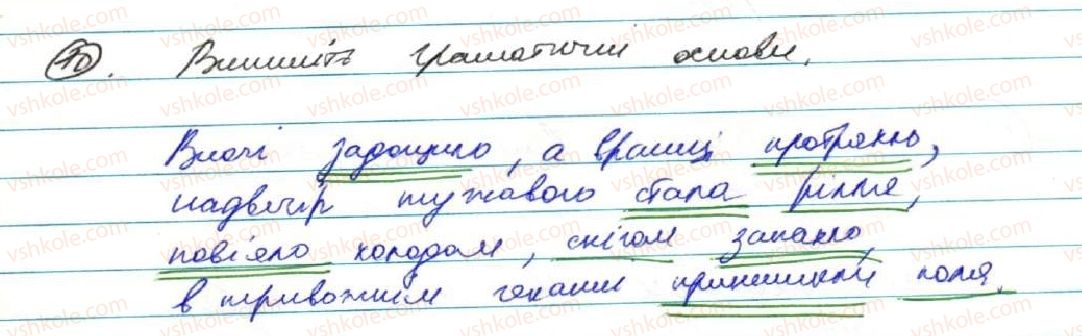 10. Випишіть граматичні основи.
Вночі задощило, а вранці протряхло,
надвечір тужавого стала рілля,
повіяло холодом, снігом запахло,
в тривожнім чеканні принишкли поля.